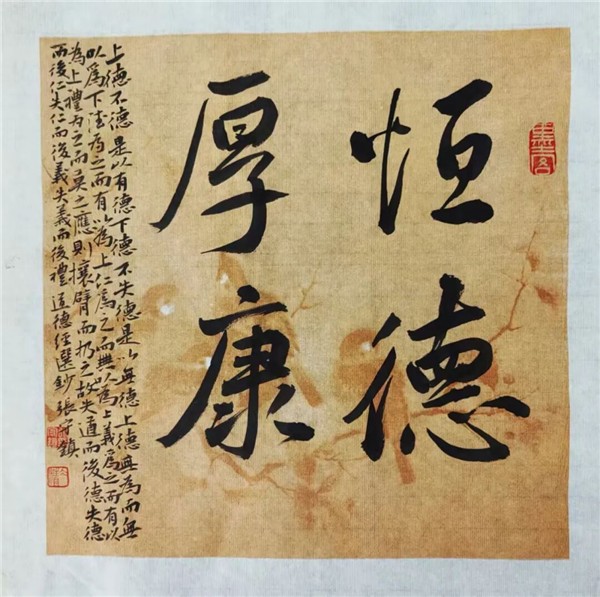 恒德
厚康
墨客
上德不德是以有德下德不失德是以無德上德無為而無
以為下德為之而有以為上仁為之而無以為上義為之而有以
為上禮為之而莫之應則攘臂而扔之故失道而後德失德
而後仁失仁而後義失義而後禮 道德經選鈔 張守鎮